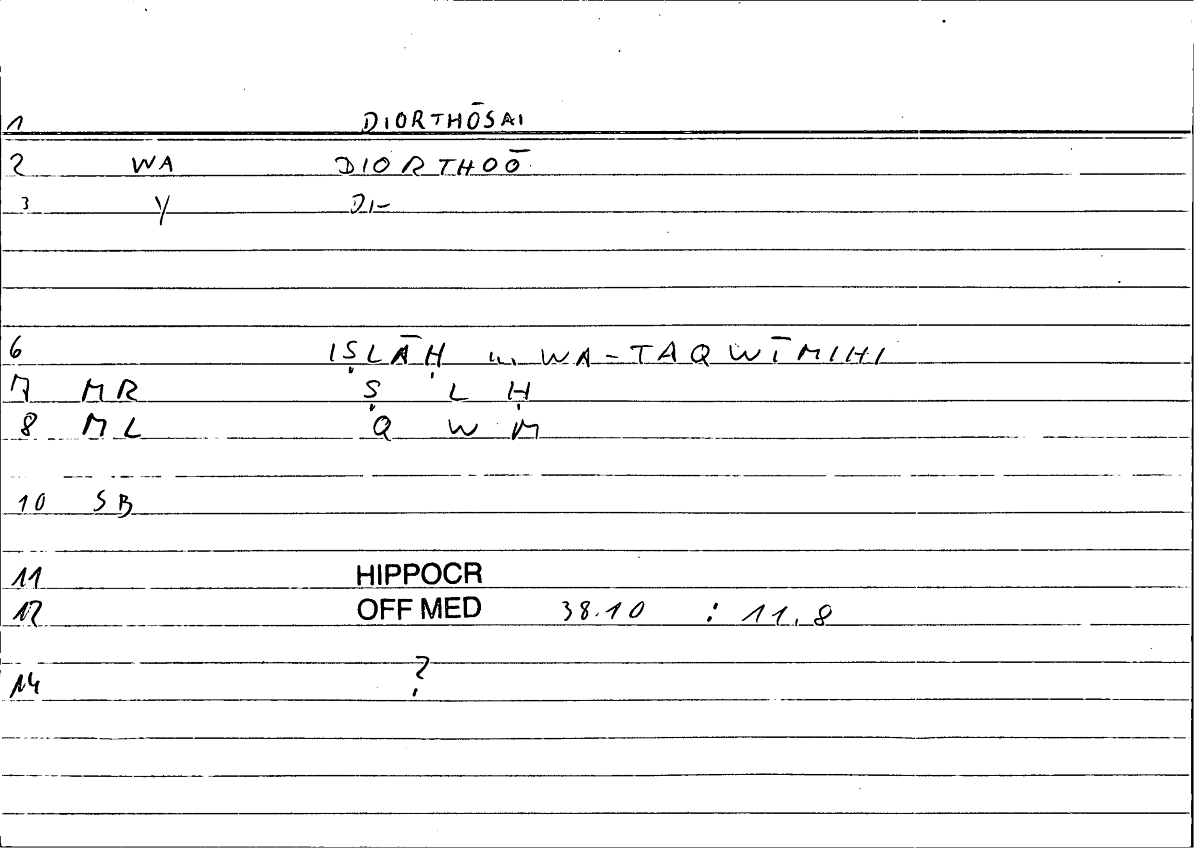 1 DIORTHŌSAI
2 WA DIORTHOŌ
3 Y DI-
6 IṢLĀḤ ... WA-TAQWĪMIHI
7 MR Ṣ L Ḥ
8 ML Q W M
10 SB
11 HIPPOCR
12 OFF MED 38.10 : 11,8
14 ?